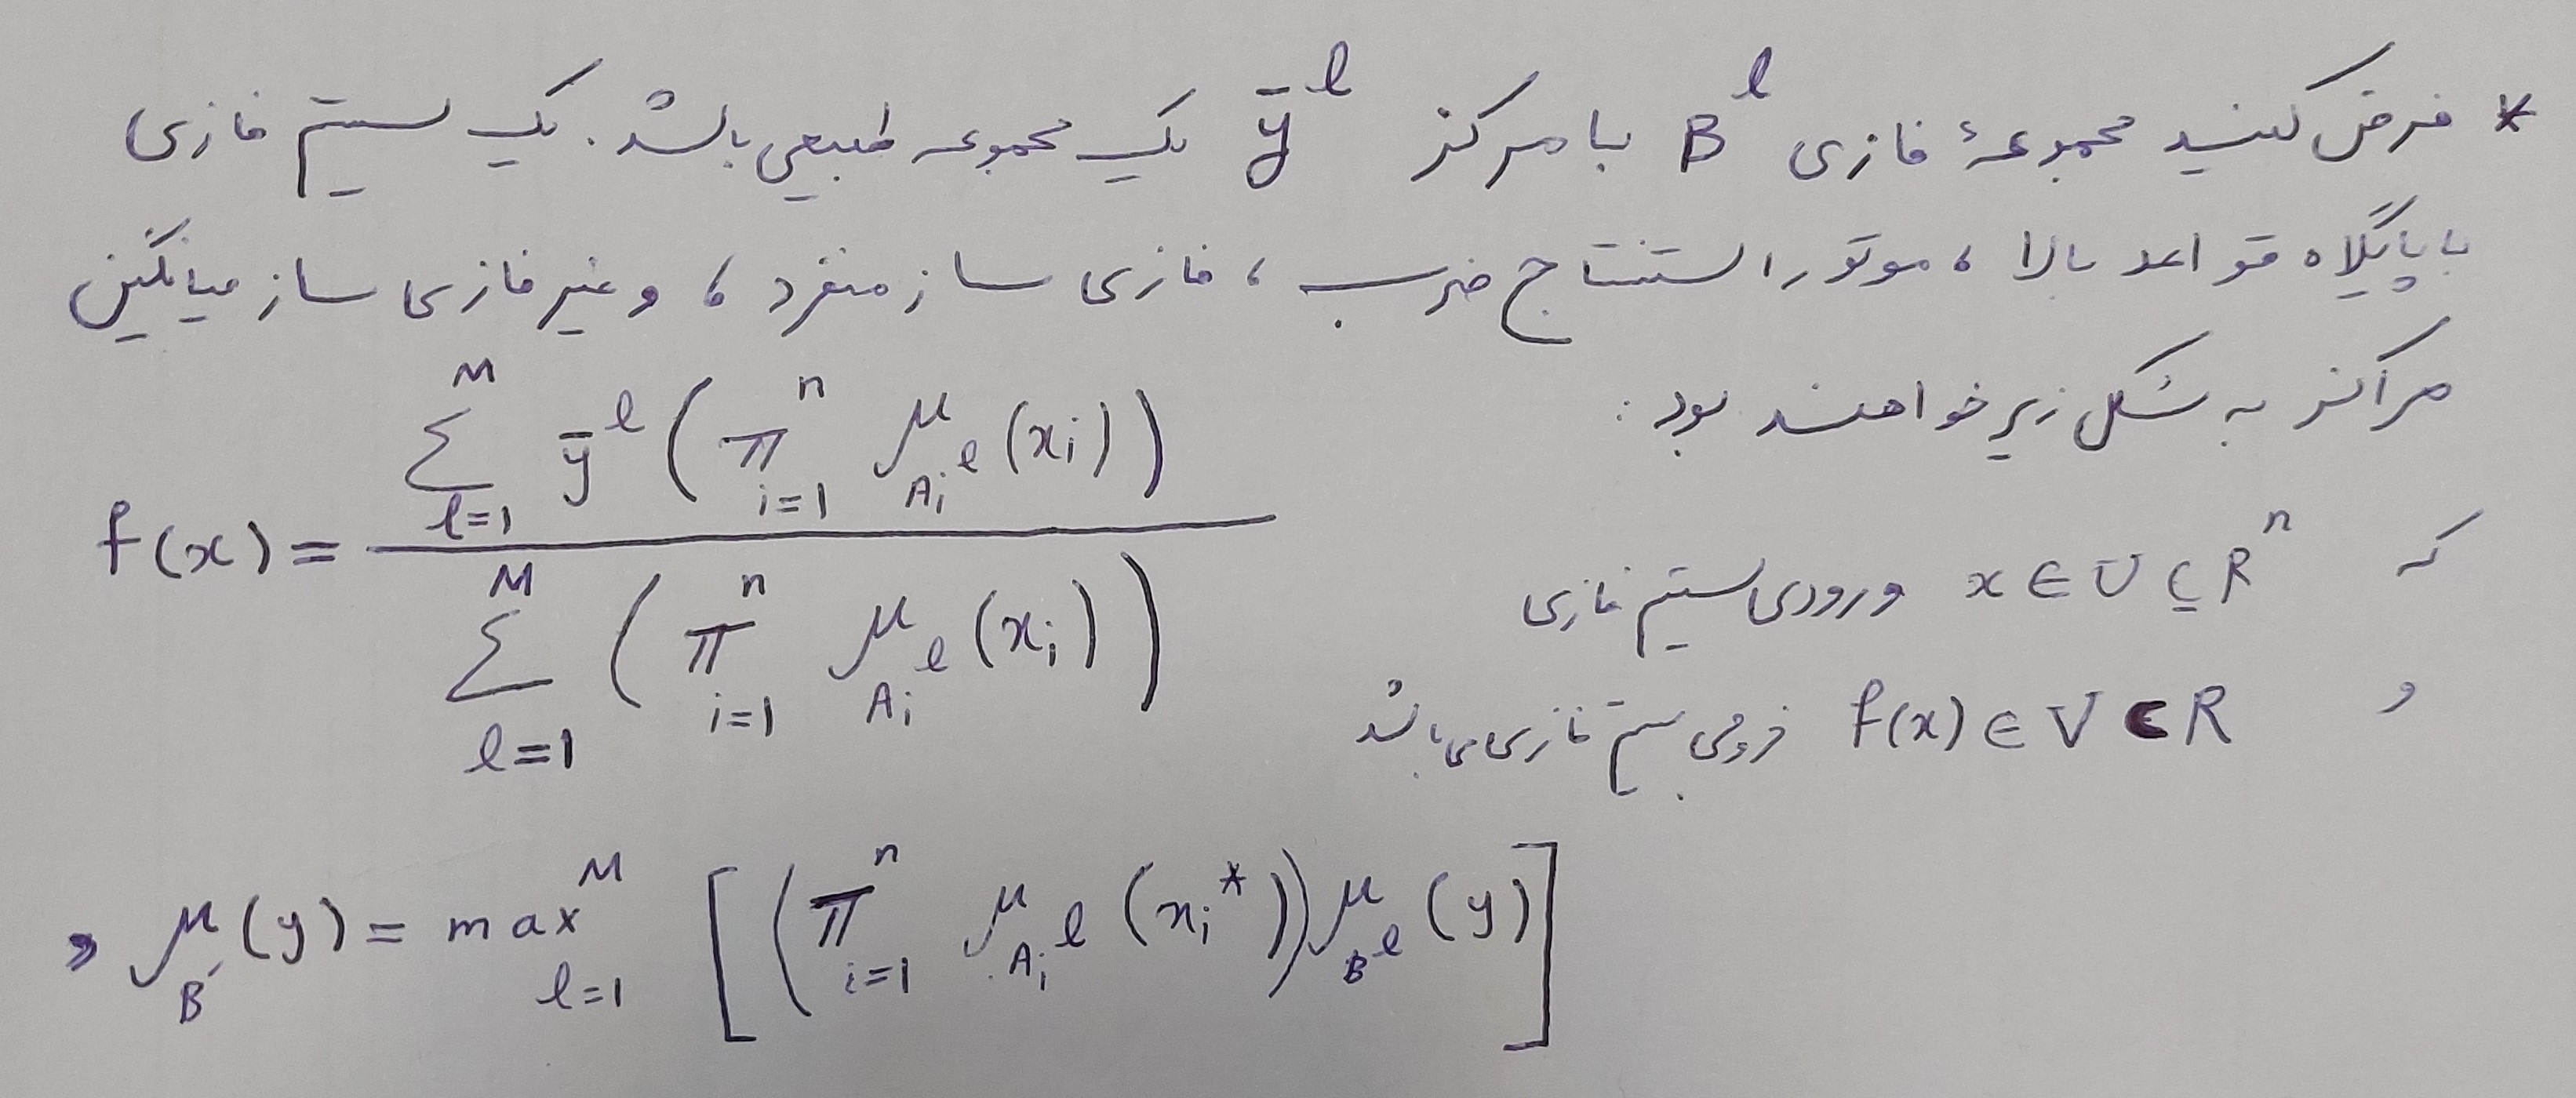 * فرض کنید مجموعهٔ فازی B^l با مرکز ȳ^l یک مجموعه طبیعی باشد. یک سیستم فازی
با پایگاه قواعد بالا، موتور استنتاج ضرب، فازی ساز منفرد، و غیر فازی ساز میانگین
مراکز به شکل زیر خواهند بود:
f(x) = \frac{\sum_{l=1}^{M} ȳ^l (\prod_{i=1}^{n} μ_{A_i^l}(x_i))}{\sum_{l=1}^{M} (\prod_{i=1}^{n} μ_{A_i^l}(x_i))}
که x ∈ U ⊆ R^n ورودی سیستم فازی
و f(x) ∈ V ⊂ R خروجی سیستم فازی می باشد
, μ_{B'}(y) = max_{l=1}^{M} [(\prod_{i=1}^{n} μ_{A_i^l}(x_i^*)) μ_{B^l}(y)]